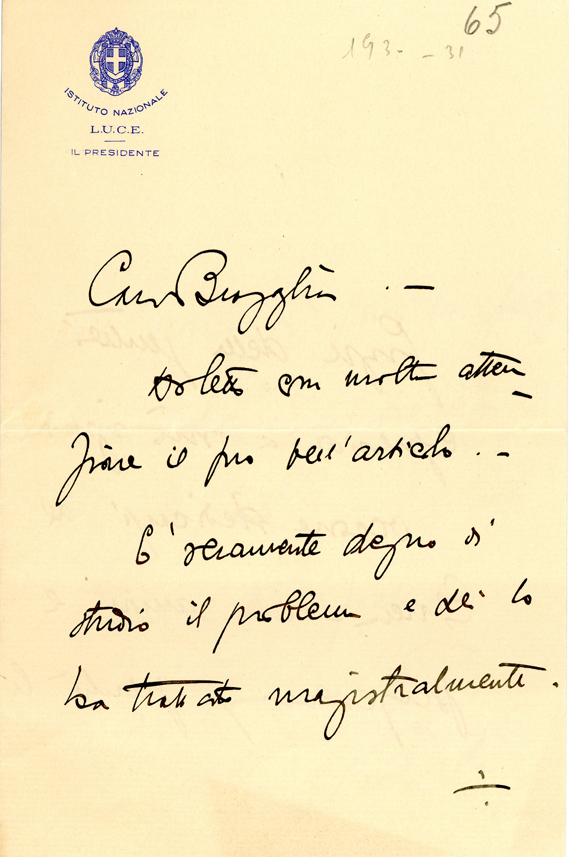 65
193- - 31
ISTITUTO NAZIONALE
L.U.C.E.
IL PRESIDENTE
Caro Bragaglia . —
Ho letto con molta atten
zione il suo bell'articolo . -
E' veramente degno di
studio il problema e lei lo
ha trattato magistralmente .